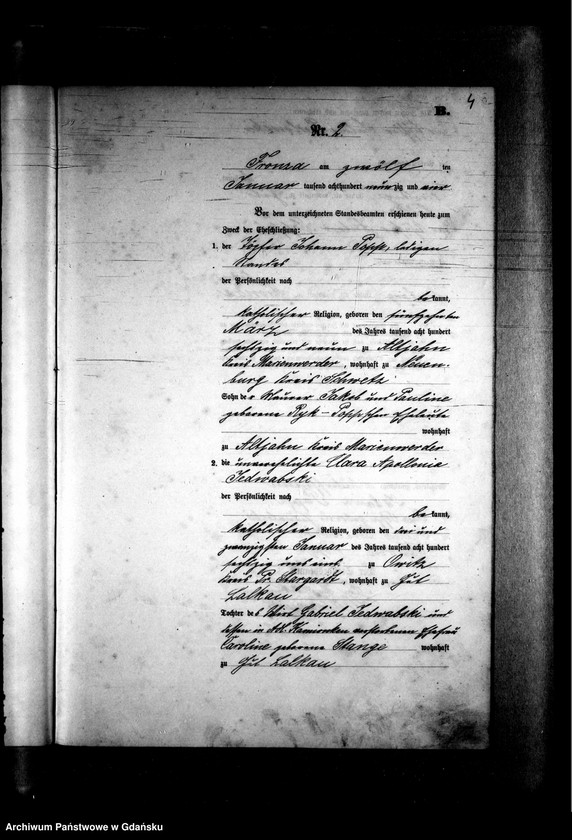 4
B.
Nr. 2.
Fronza am zwölf ten
Januar tausend achthundert neunzig und vier
Vor dem unterzeichneten Standesbeamten erschienen heute zum
Zweck der Eheschließung:
1. der Töpfer Johann Popp, ledigen
Standes
der Persönlichkeit nach
bekannt,
katholischer Religion, geboren den fünfzehnten
März des Jahres tausend acht hundert
sechzig und neun zu Altjahn
Kreis Marienwerder, wohnhaft zu Neuen-
burg Kreis Schwetz
Sohn des Maurer Jakob und Pauline
geborene Ryk-Popp'schen Eheleute
wohnhaft
zu Altjahn Kreis Marienwerder
2. die unverehelichte Clara Apollonia
Jedwabski
der Persönlichkeit nach
bekannt,
katholischer Religion, geboren den drei und
zwanzigsten Januar des Jahres tausend acht hundert
sechzig und eins zu Owitz
Kreis Pr. Stargardt, wohnhaft zu Gut
Lalkau
Tochter des Wirt Gabriel Jedwabski und
dessen in Kamionken verstorbenen Ehefrau
Caroline geborene Stange wohnhaft
zu Gut Lalkau
Archiwum Państwowe w Gdańsku